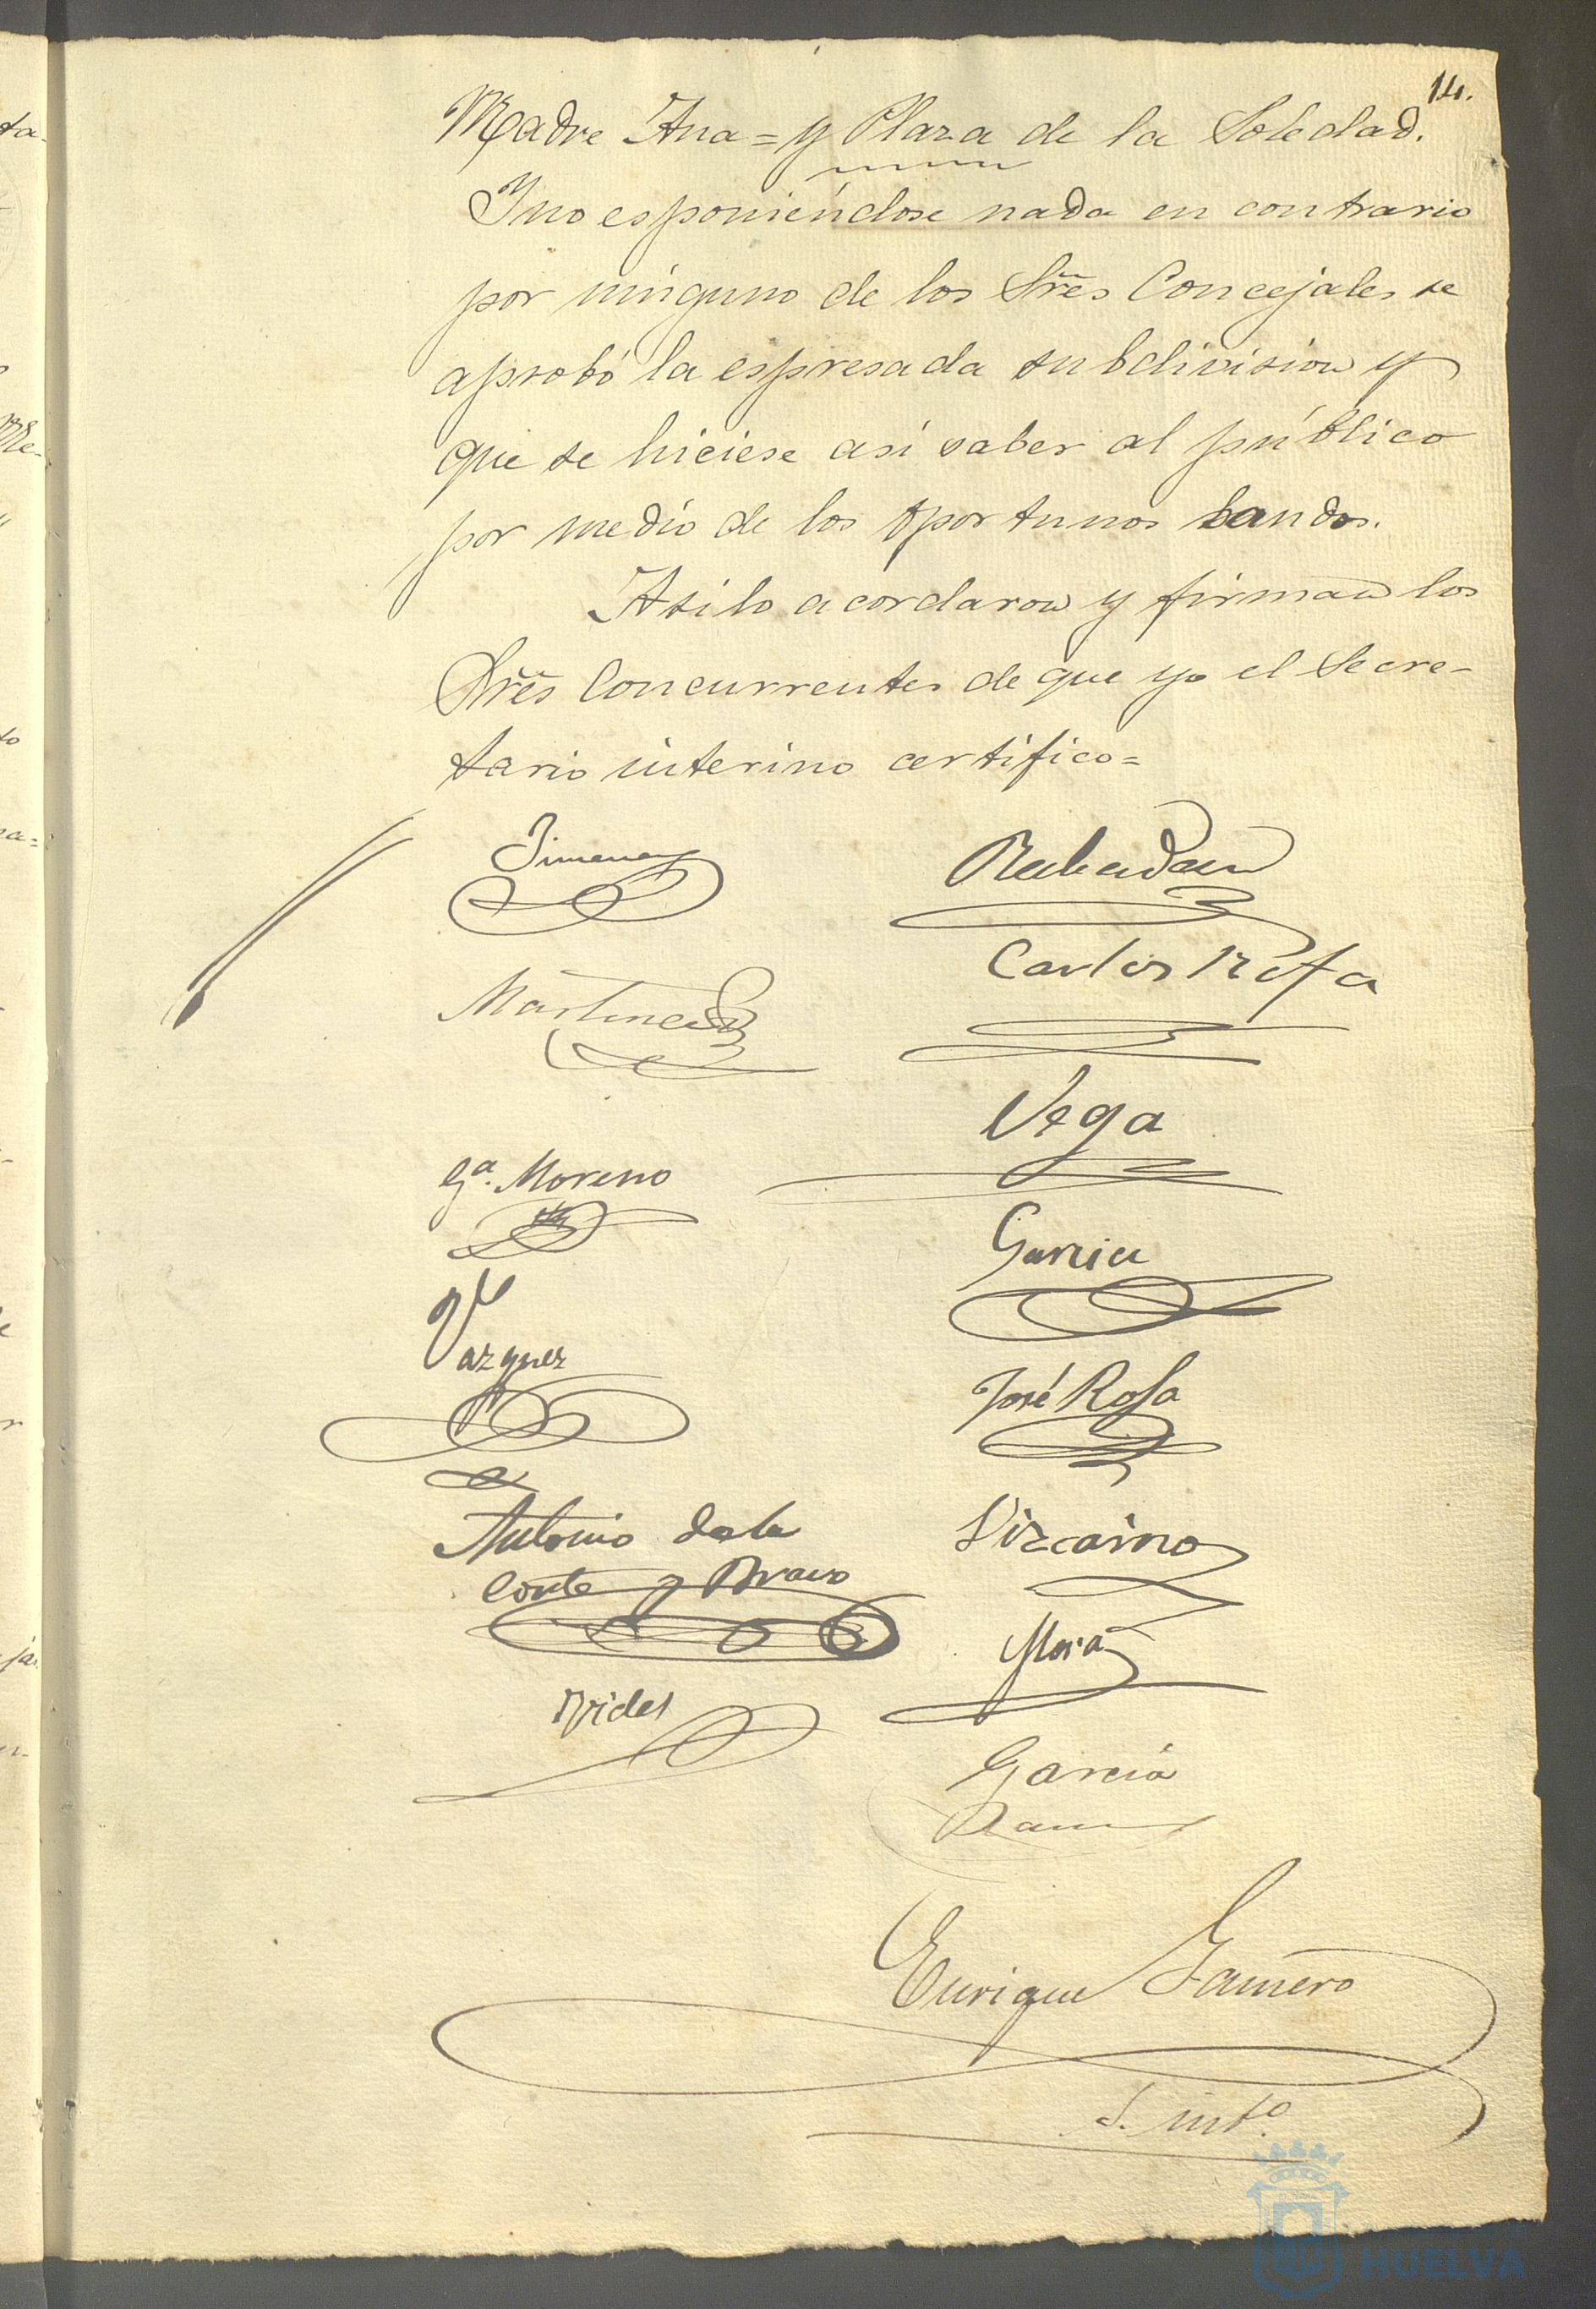 14.
Madre Ana = y Plaza de la Soledad.
Y no esponiéndose nada en contrario
por ninguno de los Sres Concejales se
aprobó la espresada subdivision y
que se hiciese asi saber al público
por medio de los oportunos bandos.
Asi lo acordaron y firman los
Sres Concurrentes de que yo el Secre-
tario interino certifico=
Jimenez
Rabadan
Carlos Rofa
Martinez
Vega
Ga. Moreno
Garcia
Vazquez
José Rofa
Antonio de la
Corte y Bravo
Vizcaino
Mora
Garcia
Ram
Enrique Gamero
S. into.
HUELVA